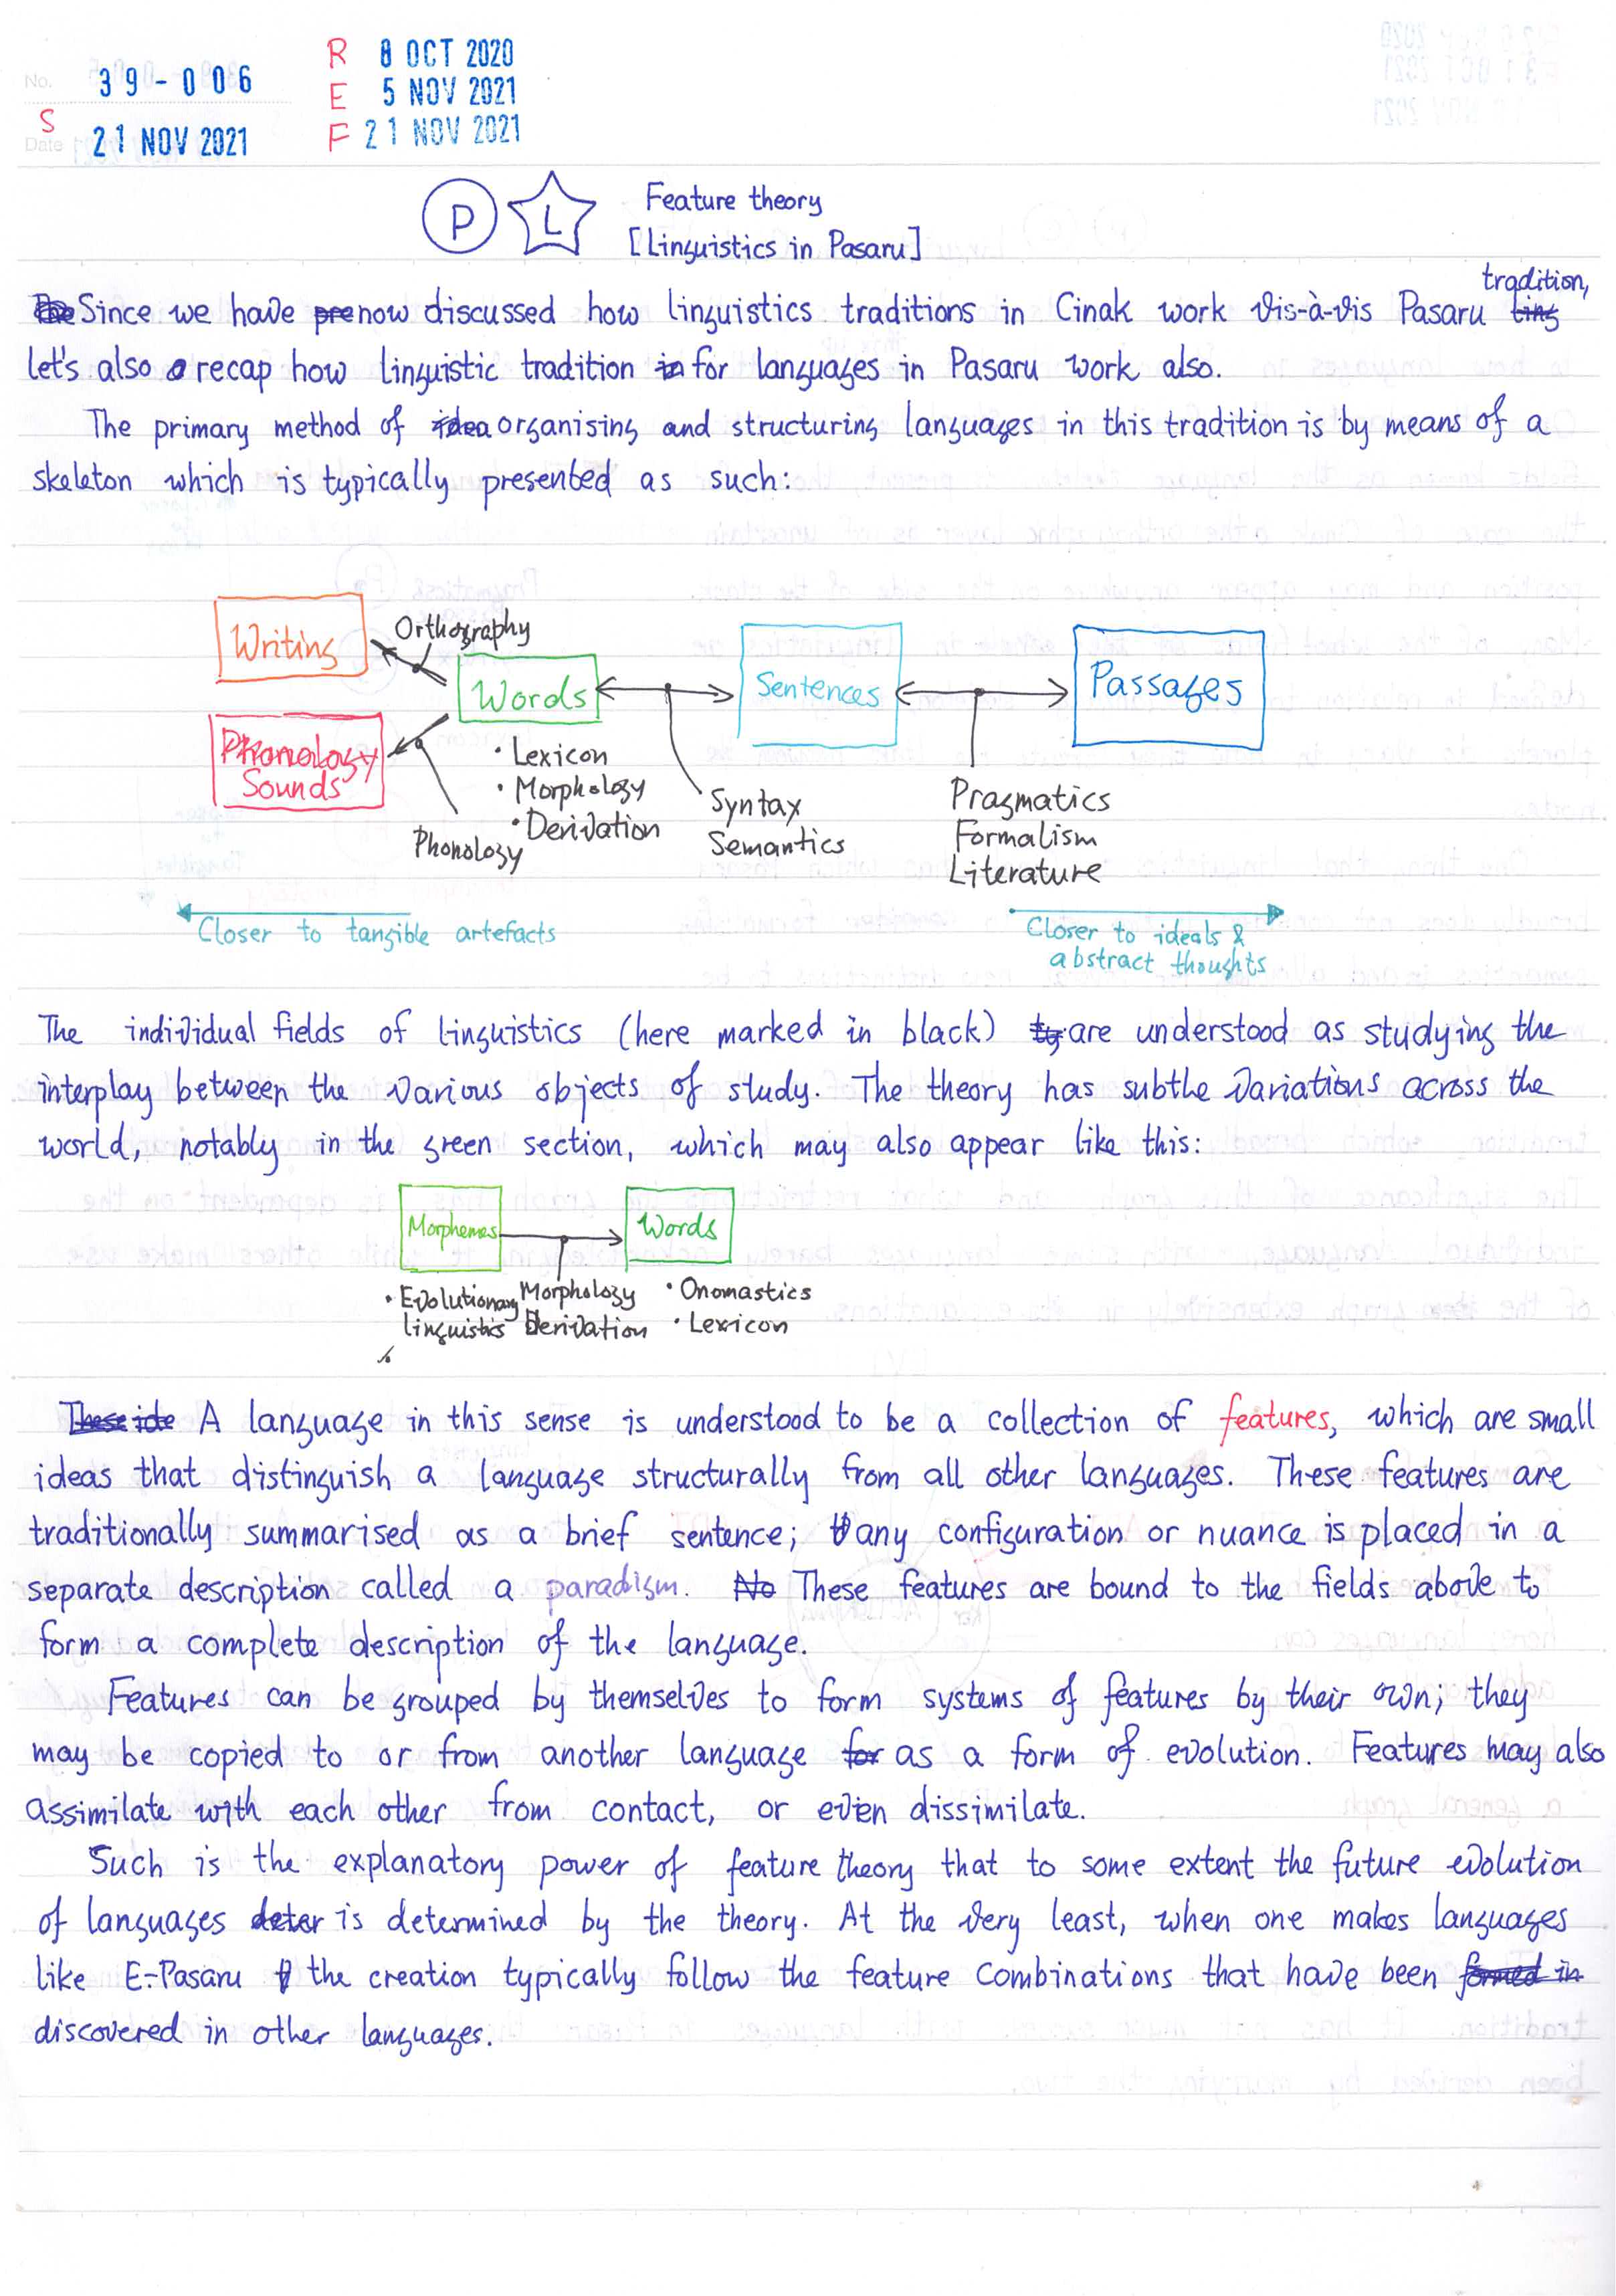 No. 39-006
S
Date 21 NOV 2021
R 8 OCT 2020
E 5 NOV 2021
F 21 NOV 2021
P L Feature theory
[Linguistics in Pasaru]
Since we have now discussed how linguistics traditions in Cinak work vis-à-vis Pasaru tradition,
let's also recap how linguistic tradition for languages in Pasaru work also.
The primary method of organising and structuring languages in this tradition is by means of a
skeleton which is typically presented as such:
Writing
Orthography
Words
Sentences
Passages
Phonology
Sounds
• Lexicon
• Morphology
• Derivation
Phonology
Syntax
Semantics
Pragmatics
Formalism
Literature
Closer to tangible artefacts
Closer to ideals &
abstract thoughts
The individual fields of linguistics (here marked in black) are understood as studying the
interplay between the various objects of study. The theory has subthe variations across the
world, notably in the green section, which may also appear like this:
Morphemes
Words
• Evolutionary
linguistics
Morphology
Derivation
• Onomastics
• Lexicon
A language in this sense is understood to be a collection of features, which are small
ideas that distinguish a language structurally from all other languages. These features are
traditionally summarised as a brief sentence; any configuration or nuance is placed in a
separate description called a paradigm. These features are bound to the fields above to
form a complete description of the language.
Features can be grouped by themselves to form systems of features by their own; they
may be copied to or from another language as a form of evolution. Features may also
assimilate with each other from contact, or even dissimilate.
Such is the explanatory power of feature theory that to some extent the future evolution
of languages is determined by the theory. At the very least, when one makes languages
like E-Pasaru the creation typically follow the feature combinations that have been
discovered in other languages.